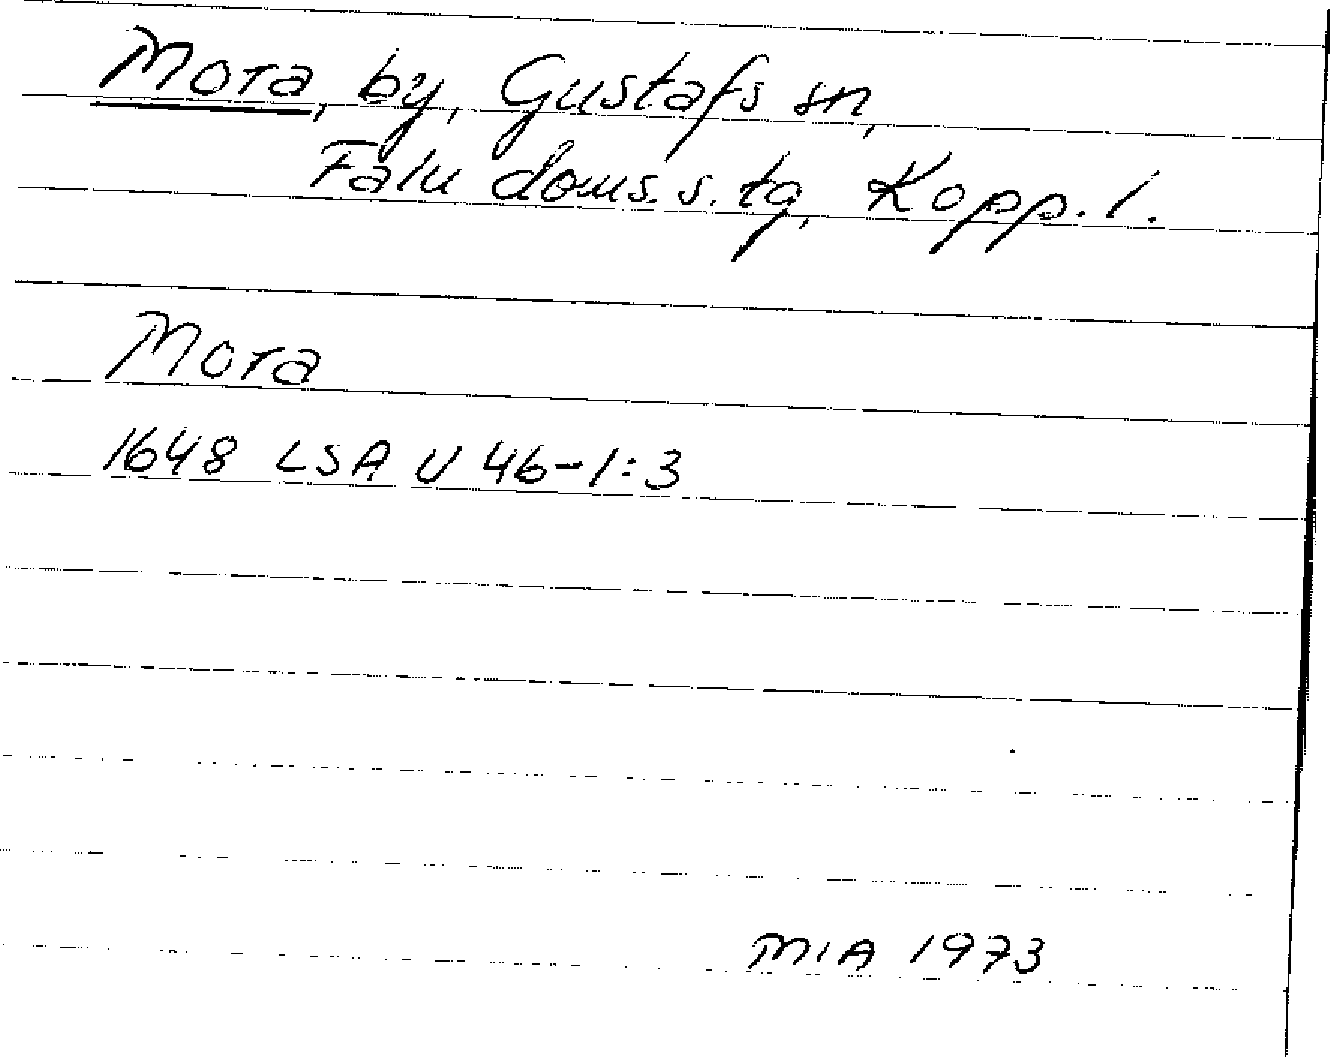 Mora, by, Gustafs sn,
Falu doms.s. tg, Kopp. l.
Mora
1648 LSA U 46-1:3
MIA 1973